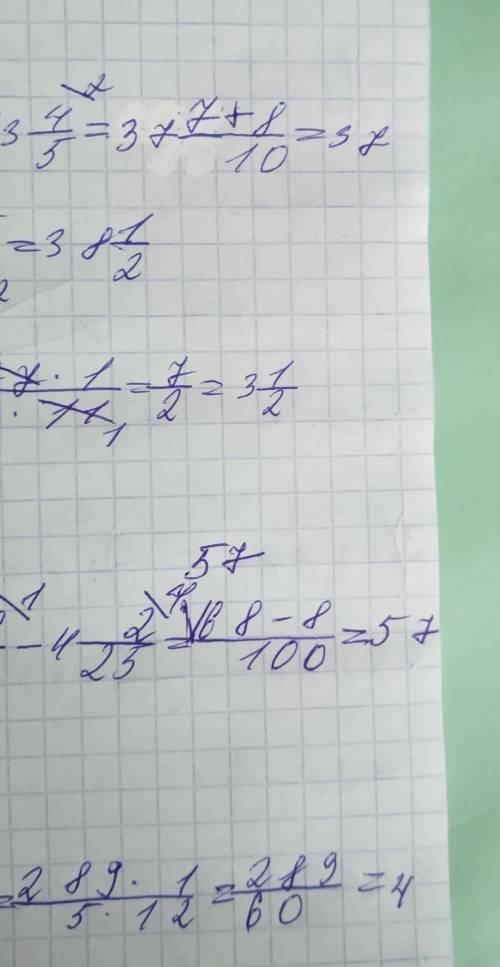 3 4/5 \2 = 37 7+8/10 = 37
= 38 1/2
7 · 1 / · 11 1 = 7/2 = 3 1/2
57
\1 - 4 2/25 \4 = 68-8/100 = 57
= 289 · 1 / 5 · 12 = 289/60 = 4